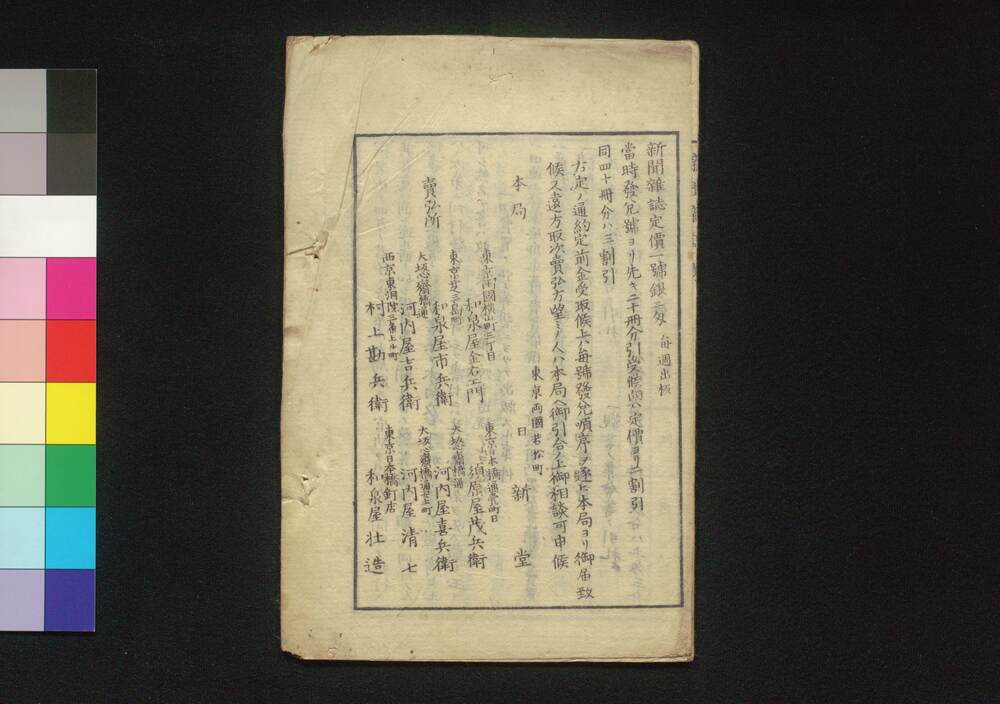 新聞雜誌定價一號銀二匁 每週出板
當時發兌號ヨリ先キ二十冊分引受候與ハ定價ヨリ二割引
同四十冊分ハ三割引
右定ノ通約定前金受取候上ハ每號發兌順序ヲ逐ヒ本局ヨリ御屆致
候又遠方取次賣弘方望ミノ人ハ本局ヘ御引合ノ上御相談可申候
東京両國若松町
本局 日新堂
賣弘所
東京両國橫山町三丁目
和泉屋金右エ門
東京日本橋通壹町目
須原屋茂兵衛
東京芝三島町
和泉屋市兵衛
大坂心齋橋通
河内屋喜兵衛
大坂心齋橋通
河内屋吉兵衛
大坂心齋橋通
河内屋清七
西京東洞院三條上ル町
村上勘兵衛
東京日本橋釘店
和泉屋壮造